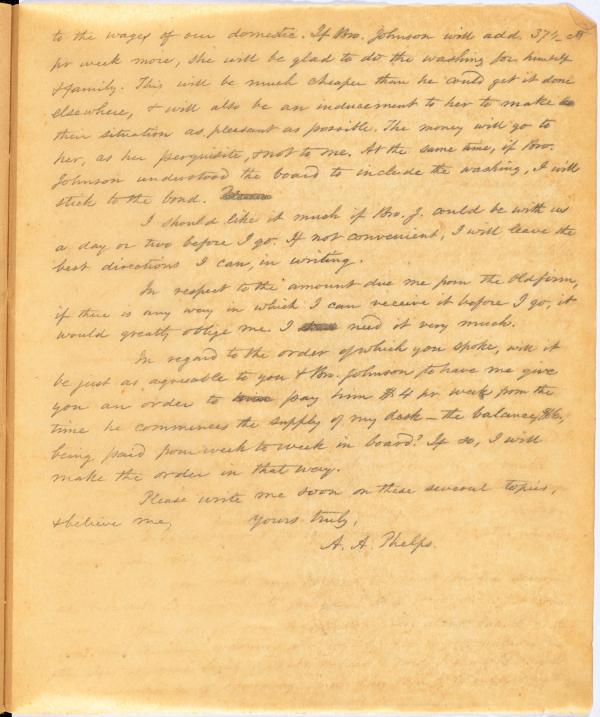 to the wages of our domestic. If Bro. Johnson will add 37½ cts
pr week more, she will be glad to do the washing for himself
& family. This will be much cheaper than he could get it done
elsewhere, & will also be an inducement to her to make
their situation as pleasant as possible. The money will go to
her, as her perquisite, & not to me. At the same time, if Bro.
Johnson understood the board to include the washing, I will
stick to the bond.
I should like it much if Bro. J. could be with us
a day or two before I go. If not convenient, I will leave the
best directions I can, in writing.
In respect to the amount due me from the old firm,
if there is any way in which I can receive it before I go, it
would greatly oblige me. I need it very much.
In regard to the order of which you spoke, will it
be just as agreeable to you & Bro. Johnson to have me give
you an order to pay him $4 pr week from the
time he commences the supply of my desk – the balance, $6,
being paid from week to week in board? If so, I will
make the order in that way.
Please write me soon on these several topics,
& believe me, yours truly,
A. A. Phelps.